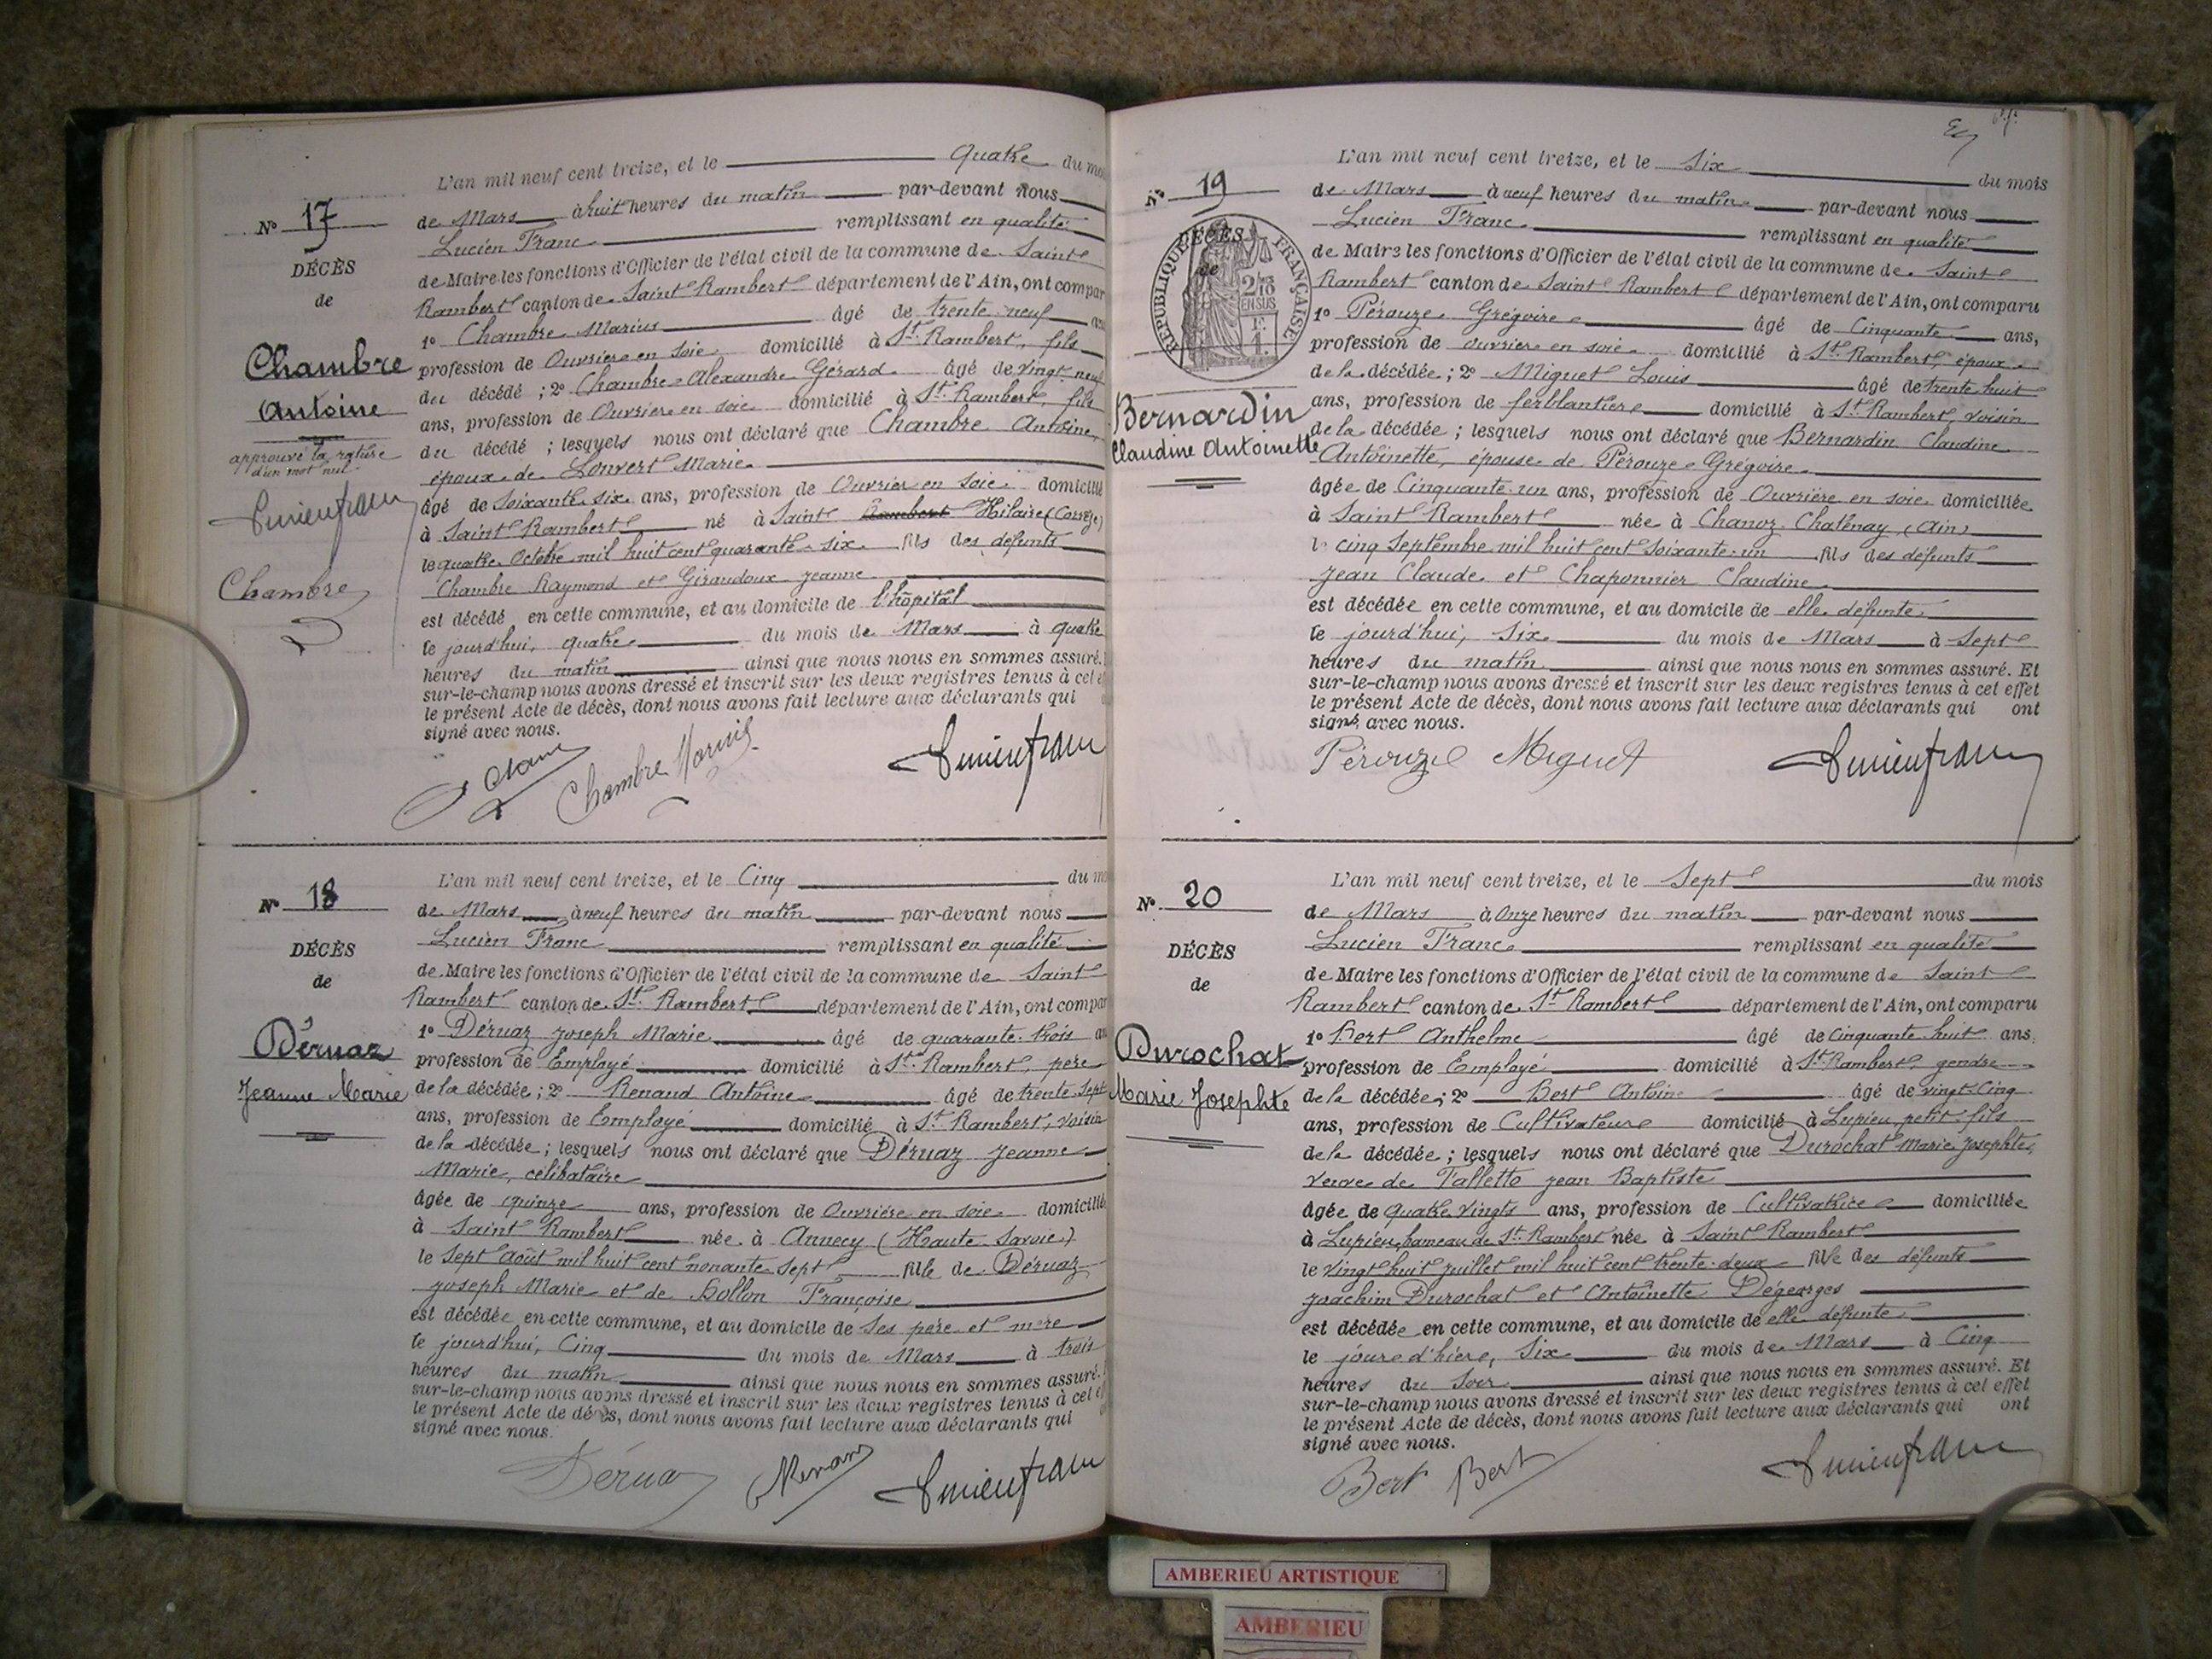 L'an mil neuf cent treize, et le Quatre du
N° 17
de Mars à huit heures du matin par-devant nous
Lucien Franc remplissant en qualité
DÉCÈS
de Maire les fonctions d'Officier de l'état civil de la commune de Saint
de
Rambert canton de Saint Rambert département de l'Ain, ont compar
1° Chambre Marius âgé de trente neuf
Chambre
profession de Ouvrier en soie domicilié à St. Rambert, fils
du décédé ; 2° Chambre Alexandre Gérard âgé de vingt neuf
Antoine
ans, profession de Ouvrier en soie domicilié à St. Rambert, fils
du décédé ; lesquels nous ont déclaré que Chambre Antoine,
approuvé la rature
d'un mot nul
époux de Louvert Marie
âgé de Soixante six ans, profession de Ouvrier en Soie domicilié
Lucien Franc
à Saint Rambert né à Saint Rambert Hilaire (Corrèze)
le quatre Octobre mil huit cent quarante-six fils des défunts
Chambre
Chambre Raymond et Giraudoux Jeanne
est décédé en cette commune, et au domicile de l'hôpital
le jourd'hui, quatre du mois de Mars à quatre
heures du matin ainsi que nous nous en sommes assuré.
sur-le-champ nous avons dressé et inscrit sur les deux registres tenus à cet
le présent Acte de décès, dont nous avons fait lecture aux déclarants qui
signé avec nous.
Chambre Marius Lucien Franc
L'an mil neuf cent treize, et le Cinq du
N° 18
de Mars à neuf heures du matin par-devant nous
Lucien Franc remplissant en qualité
DÉCÈS
de Maire les fonctions d'Officier de l'état civil de la commune de Saint
de
Rambert canton de St. Rambert département de l'Ain, ont compar
1° Déruaz Joseph Marie âgé de quarante-trois
Déruaz
profession de Employé domicilié à St. Rambert, père
Jeanne Marie
de la décédée ; 2° Renaud Antoine âgé de trente-Sept
ans, profession de Employé domicilié à St. Rambert, voisin
de la décédée ; lesquels nous ont déclaré que Déruaz Jeanne
Marie, célibataire
âgée de quinze ans, profession de Ouvrière en soie domiciliée
à Saint Rambert née à Annecy (Haute Savoie)
le Sept Août mil huit cent nonante-Sept fille de Déruaz
Joseph Marie et de Hollon Françoise
est décédée en cette commune, et au domicile de Ses père et mère
le jourd'hui, Cinq du mois de Mars à trois
heures du matin ainsi que nous nous en sommes assuré.
sur-le-champ nous avons dressé et inscrit sur les deux registres tenus à cet
le présent Acte de décès, dont nous avons fait lecture aux déclarants qui
signé avec nous.
Dérua Renaud Lucien Franc
L'an mil neuf cent treize, et le Six du mois
N° 19
de Mars à neuf heures du matin par-devant nous
Lucien Franc remplissant en qualité
DÉCÈS
de
RÉPUBLIQUE FRANÇAISE
2/10
EN SUS
F.
1.
de Maire les fonctions d'Officier de l'état civil de la commune de Saint
Rambert canton de Saint Rambert département de l'Ain, ont comparu
1° Pérouze Grégoire âgé de Cinquante ans,
profession de ouvrier en soie domicilié à St. Rambert, époux
de la décédée ; 2° Miguet Louis âgé de trente huit
Bernardin
ans, profession de ferblantier domicilié à St. Rambert, voisin
Claudine Antoinette
de la décédée ; lesquels nous ont déclaré que Bernardin Claudine
Antoinette, épouse de Pérouze Grégoire
âgée de Cinquante un ans, profession de Ouvrière en soie domiciliée
à Saint Rambert née à Chanoz Chatenay (Ain)
le cinq Septembre mil huit cent Soixante-un fils des défunts
Jean Claude et Chaponnier Claudine
est décédée en cette commune, et au domicile de elle défunte
le jourd'hui, Six du mois de Mars à Sept
heures du matin ainsi que nous nous en sommes assuré. Et
sur-le-champ nous avons dressé et inscrit sur les deux registres tenus à cet effet
le présent Acte de décès, dont nous avons fait lecture aux déclarants qui ont
signé avec nous.
Pérouze Miguet Lucien Franc
L'an mil neuf cent treize, et le Sept du mois
N° 20
de Mars à Onze heures du matin par-devant nous
Lucien Franc remplissant en qualité
DÉCÈS
de Maire les fonctions d'Officier de l'état civil de la commune de Saint
de
Rambert canton de St. Rambert département de l'Ain, ont comparu
1° Bert Anthelme âgé de Cinquante-huit ans,
Durochat
profession de Employé domicilié à St. Rambert, gendre
Marie Josephte
de la décédée ; 2° Bert Antoine âgé de vingt-Cinq
ans, profession de Cultivateur domicilié à Lupieu, petit-fils
de la décédée ; lesquels nous ont déclaré que Durochat Marie Josephte,
veuve de Falletto Jean Baptiste
âgée de quatre vingts ans, profession de Cultivatrice domiciliée
à Lupieu, hameau de St. Rambert née à Saint Rambert
le vingt huit Juillet mil huit cent trente-deux fille des défunts
Joachim Durochat et Antoinette Dégeorges
est décédée en cette commune, et au domicile de elle défunte
le jour d'hier, Six du mois de Mars à Cinq
heures du Soir ainsi que nous nous en sommes assuré. Et
sur-le-champ nous avons dressé et inscrit sur les deux registres tenus à cet effet
le présent Acte de décès, dont nous avons fait lecture aux déclarants qui ont
signé avec nous.
Bert Bert Lucien Franc
AMBERIEU ARTISTIQUE
AMBERIEU